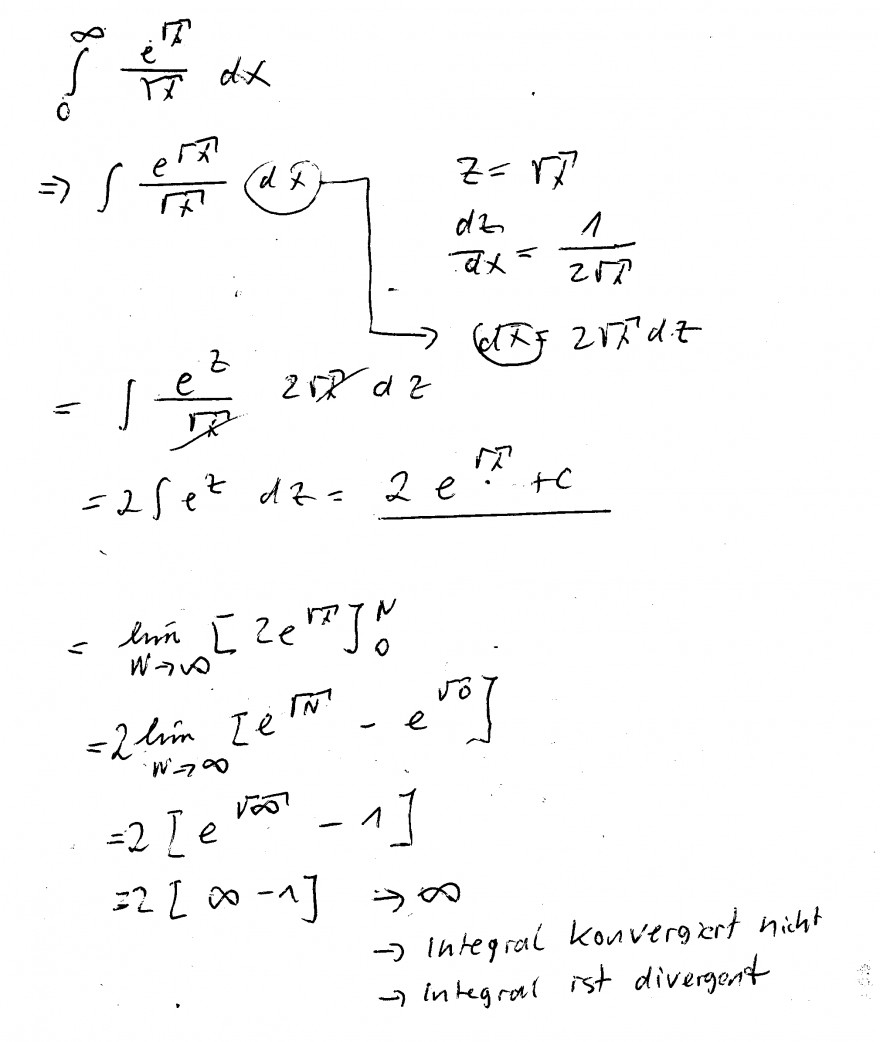 ∫₀^∞ e^√x / √x dx
⇒ ∫ e^√x / √x dx
z = √x
dz/dx = 1 / 2√x
→ dx = 2√x dz
= ∫ e^z / √x 2√x dz
= 2 ∫ e^z dz = 2 e^√x + c
= lim N→∞ [2e^√x]₀^N
= 2 lim N→∞ [e^√N − e^√0]
= 2 [e^√∞ − 1]
= 2 [∞ − 1] → ∞
→ Integral konvergiert nicht
→ Integral ist divergent